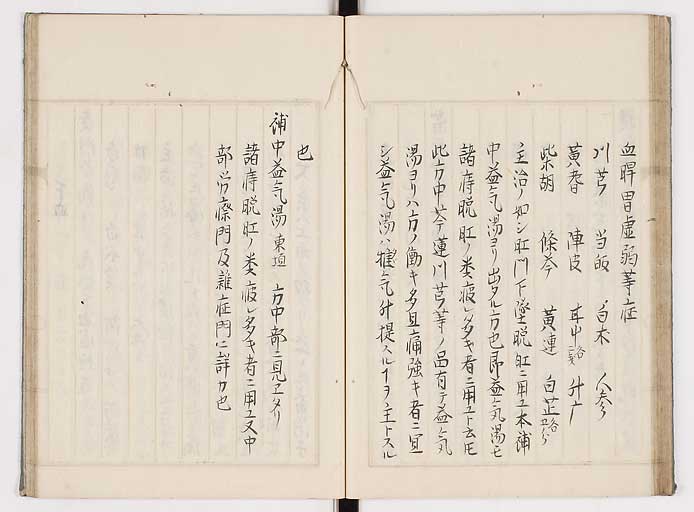 血脾胃虚弱等症
川芎 当皈 白木 人参
黄耆 陳皮 耳中 升广
柴胡 條芩 黄連 白芷
主治ノ如シ肛門下墜脱肛ニ用ユ本補
中益气湯ヨリ出タル方也即益气湯モ
諸痔脱肛ノ类疲レ多キ者ニ用ユト云𪜈
此方中芩連川芎等ノ品有テ益气
湯ヨリハ方ノ働キ多且痛強キ者ニ宜
シ益气湯ハ气升提スルヿヲ主トスル
也
補中益气湯 東垣 方中部ニ見ヱタリ
諸痔脱肛ノ类疲レ多キ者ニ用ユ又中
部労療門及雜症門ニ詳カ也